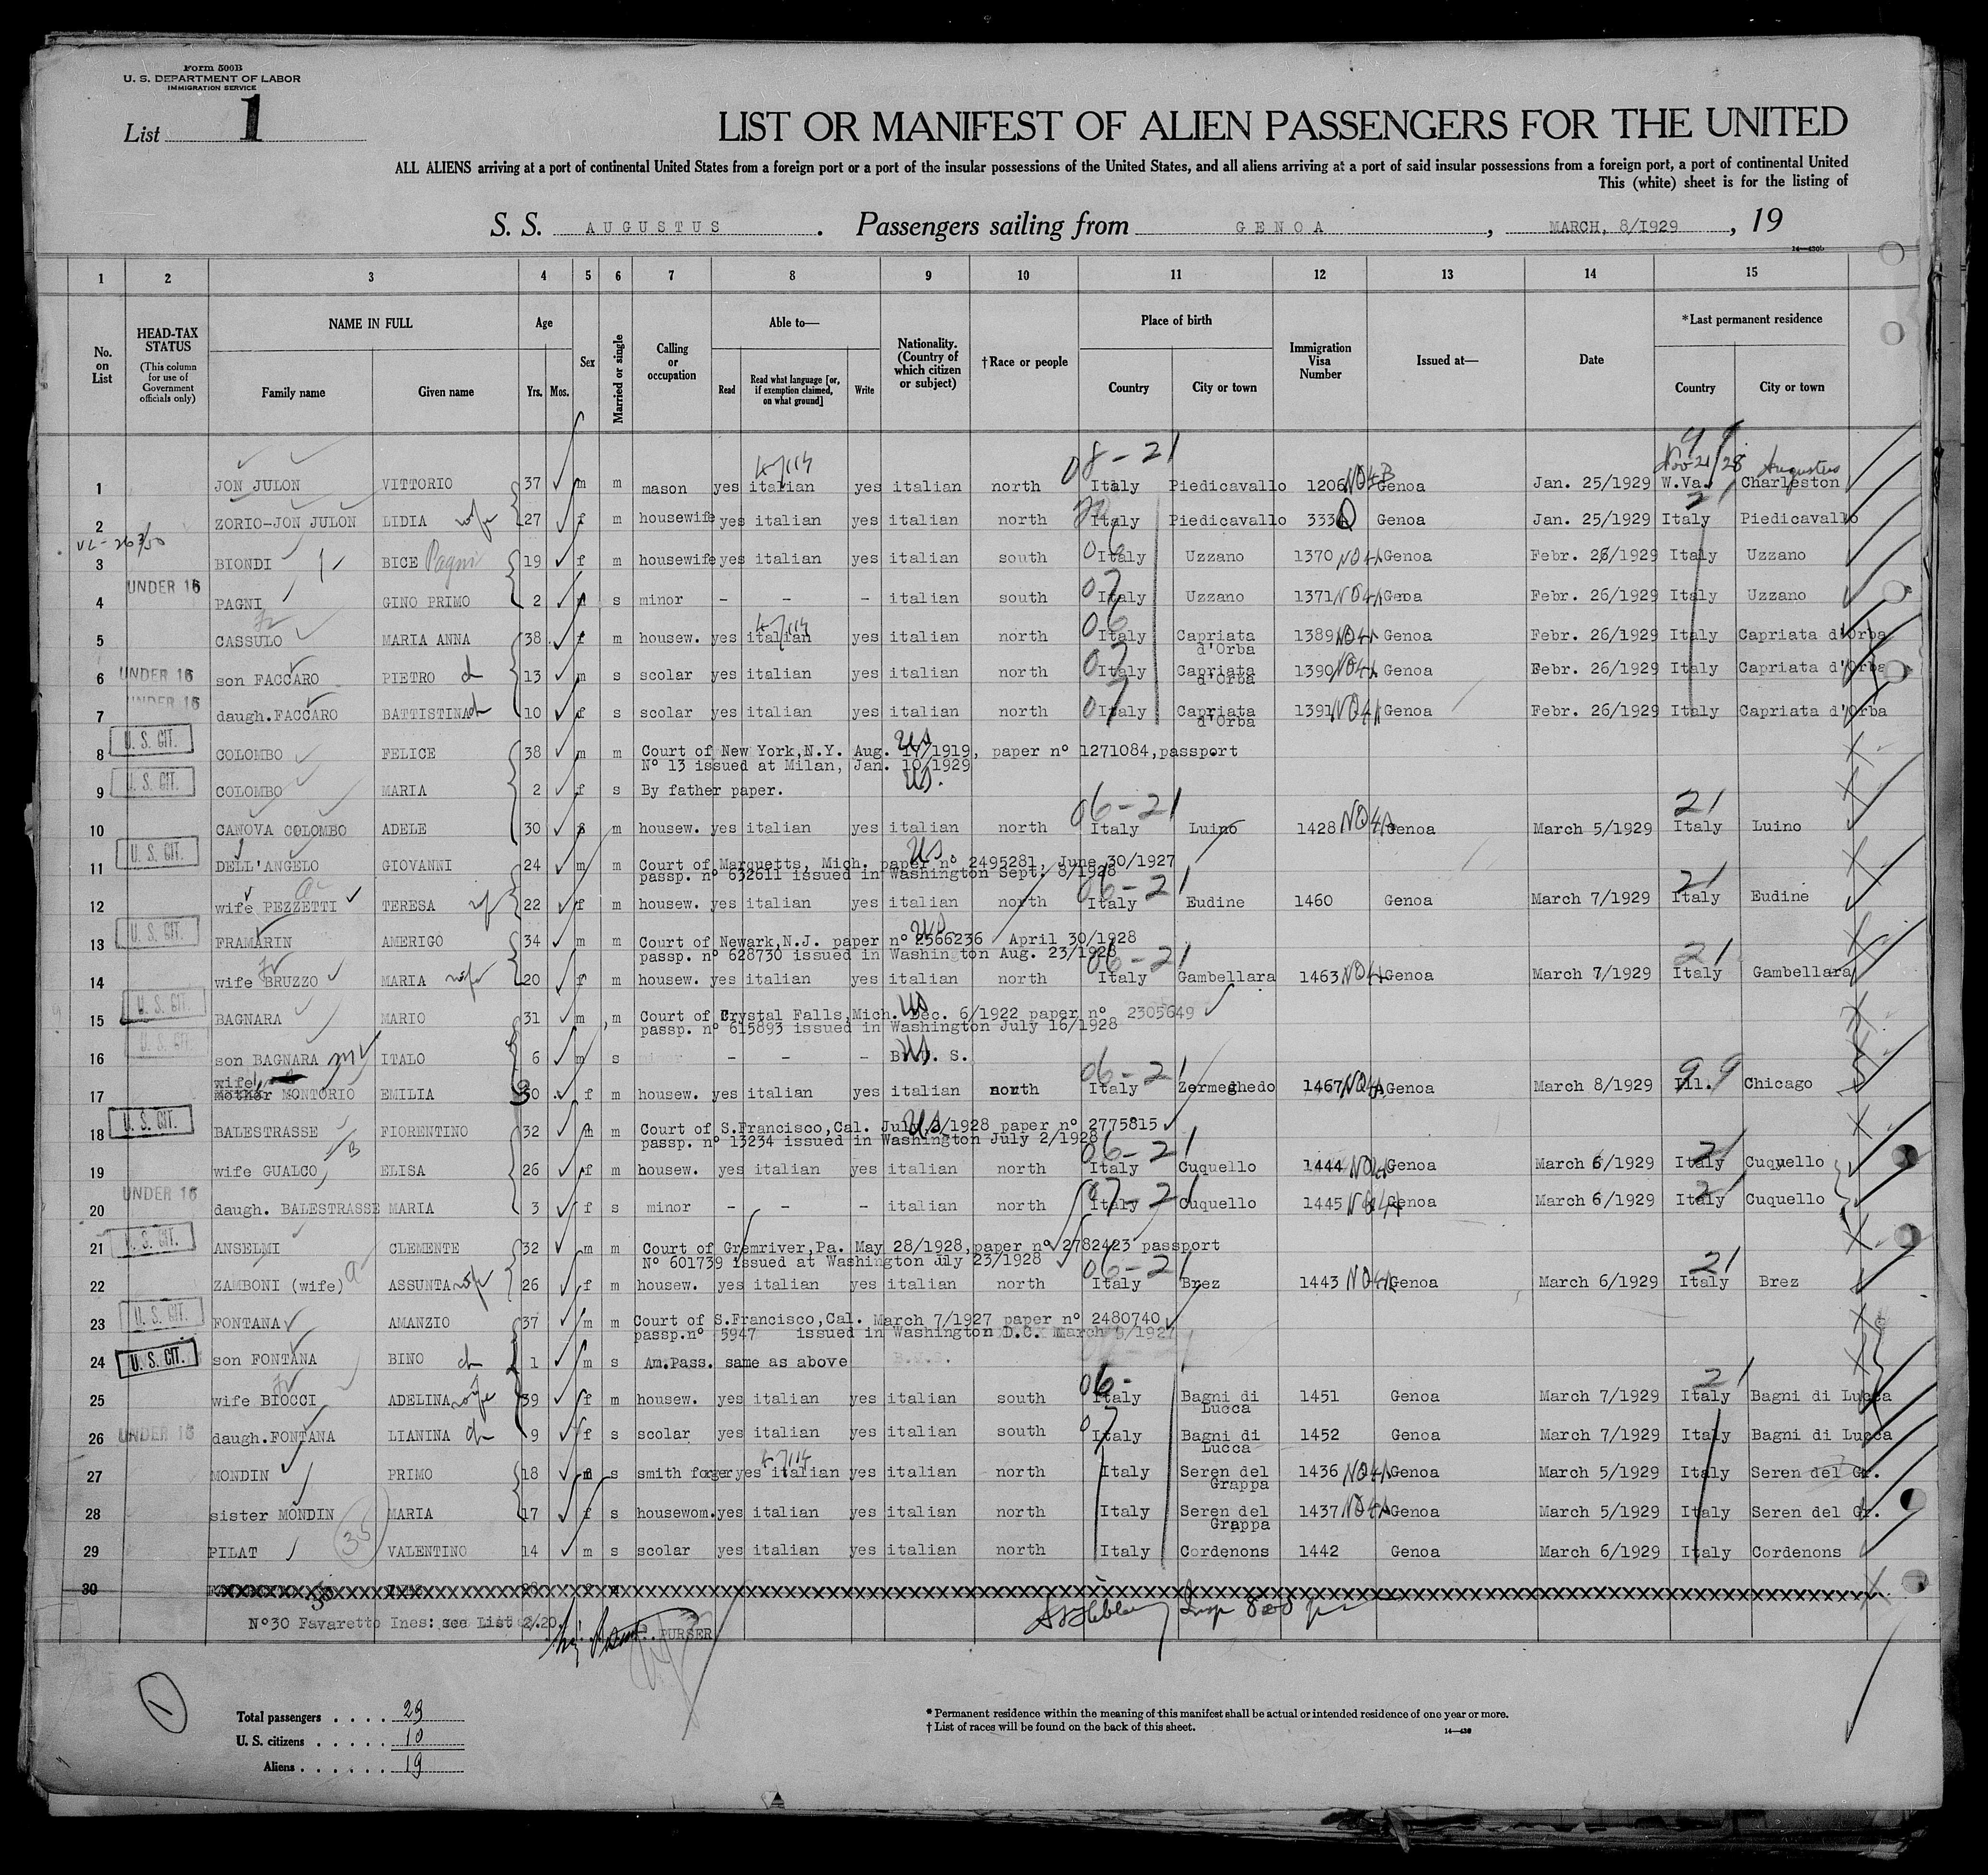 Form 500B
U. S. DEPARTMENT OF LABOR
IMMIGRATION SERVICE
List 1
LIST OR MANIFEST OF ALIEN PASSENGERS FOR THE UNITED
ALL ALIENS arriving at a port of continental United States from a foreign port or a port of the insular possessions of the United States, and all aliens arriving at a port of said insular possessions from a foreign port, a port of continental United
This (white) sheet is for the listing of
S. S. AUGUSTUS. Passengers sailing from GENOA, MARCH, 8/1929, 19
1 2 3 4 5 6 7 8 9 10 11 12 13 14 15
No. on List
HEAD-TAX STATUS (This column for use of Government officials only)
NAME IN FULL Family name Given name
Age Yrs. Mos.
Sex
Married or single
Calling or occupation
Able to— Read Read what language [or, if exemption claimed, on what ground] Write
Nationality. (Country of which citizen or subject)
†Race or people
Place of birth Country City or town
Immigration Visa Number
Issued at—
Date
*Last permanent residence Country City or town
08-21 Nov 21/28 Augustus
1 JON JULON VITTORIO 37 m m mason yes italian yes italian north Italy Piedicavallo 1206 Genoa Jan. 25/1929 W.Va. Charleston
2 ZORIO-JON JULON LIDIA wife 27 f m housewife yes italian yes italian north Italy Piedicavallo 333 Genoa Jan. 25/1929 Italy Piedicavallo
3 BIONDI BICE Pagni 19 f m housewife yes italian yes italian south Italy Uzzano 1370 Genoa Febr. 26/1929 Italy Uzzano
UNDER 16
4 PAGNI GINO PRIMO 2 m s minor - - - italian south Italy Uzzano 1371 Genoa Febr. 26/1929 Italy Uzzano
5 CASSULO MARIA ANNA 38 f m housew. yes italian yes italian north Italy Capriata d'Orba 1389 Genoa Febr. 26/1929 Italy Capriata d'Orba
6 UNDER 16 son FACCARO PIETRO 13 m s scolar yes italian yes italian north Italy Capriata d'Orba 1390 Genoa Febr. 26/1929 Italy Capriata d'Orba
UNDER 16
7 daugh.FACCARO BATTISTINA 10 f s scolar yes italian yes italian north Italy Capriata d'Orba 1391 Genoa Febr. 26/1929 Italy Capriata d'Orba
U. S. CIT.
8 COLOMBO FELICE 38 m m Court of New York,N.Y. Aug. 17/1919, paper n° 1271084,passport
N° 13 issued at Milan, Jan. 10/1929
U. S. CIT.
9 COLOMBO MARIA 2 f s By father paper. US.
06-21 21
10 CANOVA COLOMBO ADELE 30 m housew. yes italian yes italian north Italy Luino 1428 Genoa March 5/1929 Italy Luino
U. S. CIT.
11 DELL'ANGELO GIOVANNI 24 m m Court of Marquetts, Mich. paper n° 2495281, June 30/1927
passp. n° 632611 issued in Washington Sept. 8/1928
06-21 21
12 wife PEZZETTI TERESA 22 f m housew. yes italian yes italian north Italy Eudine 1460 Genoa March 7/1929 Italy Eudine
U. S. CIT.
13 FRAMARIN AMERIGO 34 m m Court of Newark,N.J. paper n° 2566236 April 30/1928
passp. n° 628730 issued in Washington Aug. 23/1928
06-21 21
14 wife BRUZZO MARIA wife 20 f m housew. yes italian yes italian north Italy Gambellara 1463 Genoa March 7/1929 Italy Gambellara
U. S. CIT.
15 BAGNARA MARIO 31 m m Court of Crystal Falls,Mich. Dec. 6/1922 paper n° 2305649
passp. n° 615893 issued in Washington July 16/1928
U. S. CIT.
16 son BAGNARA ITALO 6 m s minor - - - US
06-21 99
wife
17 mother MONTORIO EMILIA 30 f m housew. yes italian yes italian north Italy Zermeghedo 1467 Genoa March 8/1929 Ill. Chicago
U. S. CIT.
18 BALESTRASSE FIORENTINO 32 m m Court of S.Francisco,Cal. July /1928 paper n° 2775815
passp. n° 13234 issued in Washington July 2/1928
06-21 21
19 wife GUALCO ELISA 26 f m housew. yes italian yes italian north Italy Cuquello 1444 Genoa March 6/1929 Italy Cuquello
UNDER 16 07-21 21
20 daugh. BALESTRASSE MARIA 3 f s minor - - - italian north Italy Cuquello 1445 Genoa March 6/1929 Italy Cuquello
U. S. CIT.
21 ANSELMI CLEMENTE 32 m m Court of Gremriver,Pa. May 28/1928,paper n° 2782423 passport
N° 601739 issued at Washington July 23/1928
06-21 21
22 ZAMBONI (wife) ASSUNTA wife 26 f m housew. yes italian yes italian north Italy Brez 1443 Genoa March 6/1929 Italy Brez
U. S. CIT.
23 FONTANA AMANZIO 37 m m Court of S.Francisco,Cal. March 7/1927 paper n° 2480740
passp.n° 5947 issued in Washington D.C. March 9/1927
24 U. S. CIT. son FONTANA BINO 1 m s Am.Pass. same as above B.U.S.
25 wife BIOCCI ADELINA wife 39 f m housew. yes italian yes italian south Italy Bagni di Lucca 1451 Genoa March 7/1929 Italy Bagni di Lucca
26 UNDER 16 daugh.FONTANA LIANINA 9 f s scolar yes italian yes italian south Italy Bagni di Lucca 1452 Genoa March 7/1929 Italy Bagni di Lucca
27 MONDIN PRIMO 18 m s smith forger yes italian yes italian north Italy Seren del Grappa 1436 Genoa March 5/1929 Italy Seren del Gr.
28 sister MONDIN MARIA 17 f s housewom. yes italian yes italian north Italy Seren del Grappa 1437 Genoa March 5/1929 Italy Seren del Gr.
29 PILAT 35 VALENTINO 14 m s scolar yes italian yes italian north Italy Cordenons 1442 Genoa March 6/1929 Italy Cordenons
30
N°30 Favaretto Ines: see List 2/20.
PURSER
1
Total passengers .... 29
U. S. citizens ..... 10
Aliens ...... 19
* Permanent residence within the meaning of this manifest shall be actual or intended residence of one year or more.
† List of races will be found on the back of this sheet.
14—430